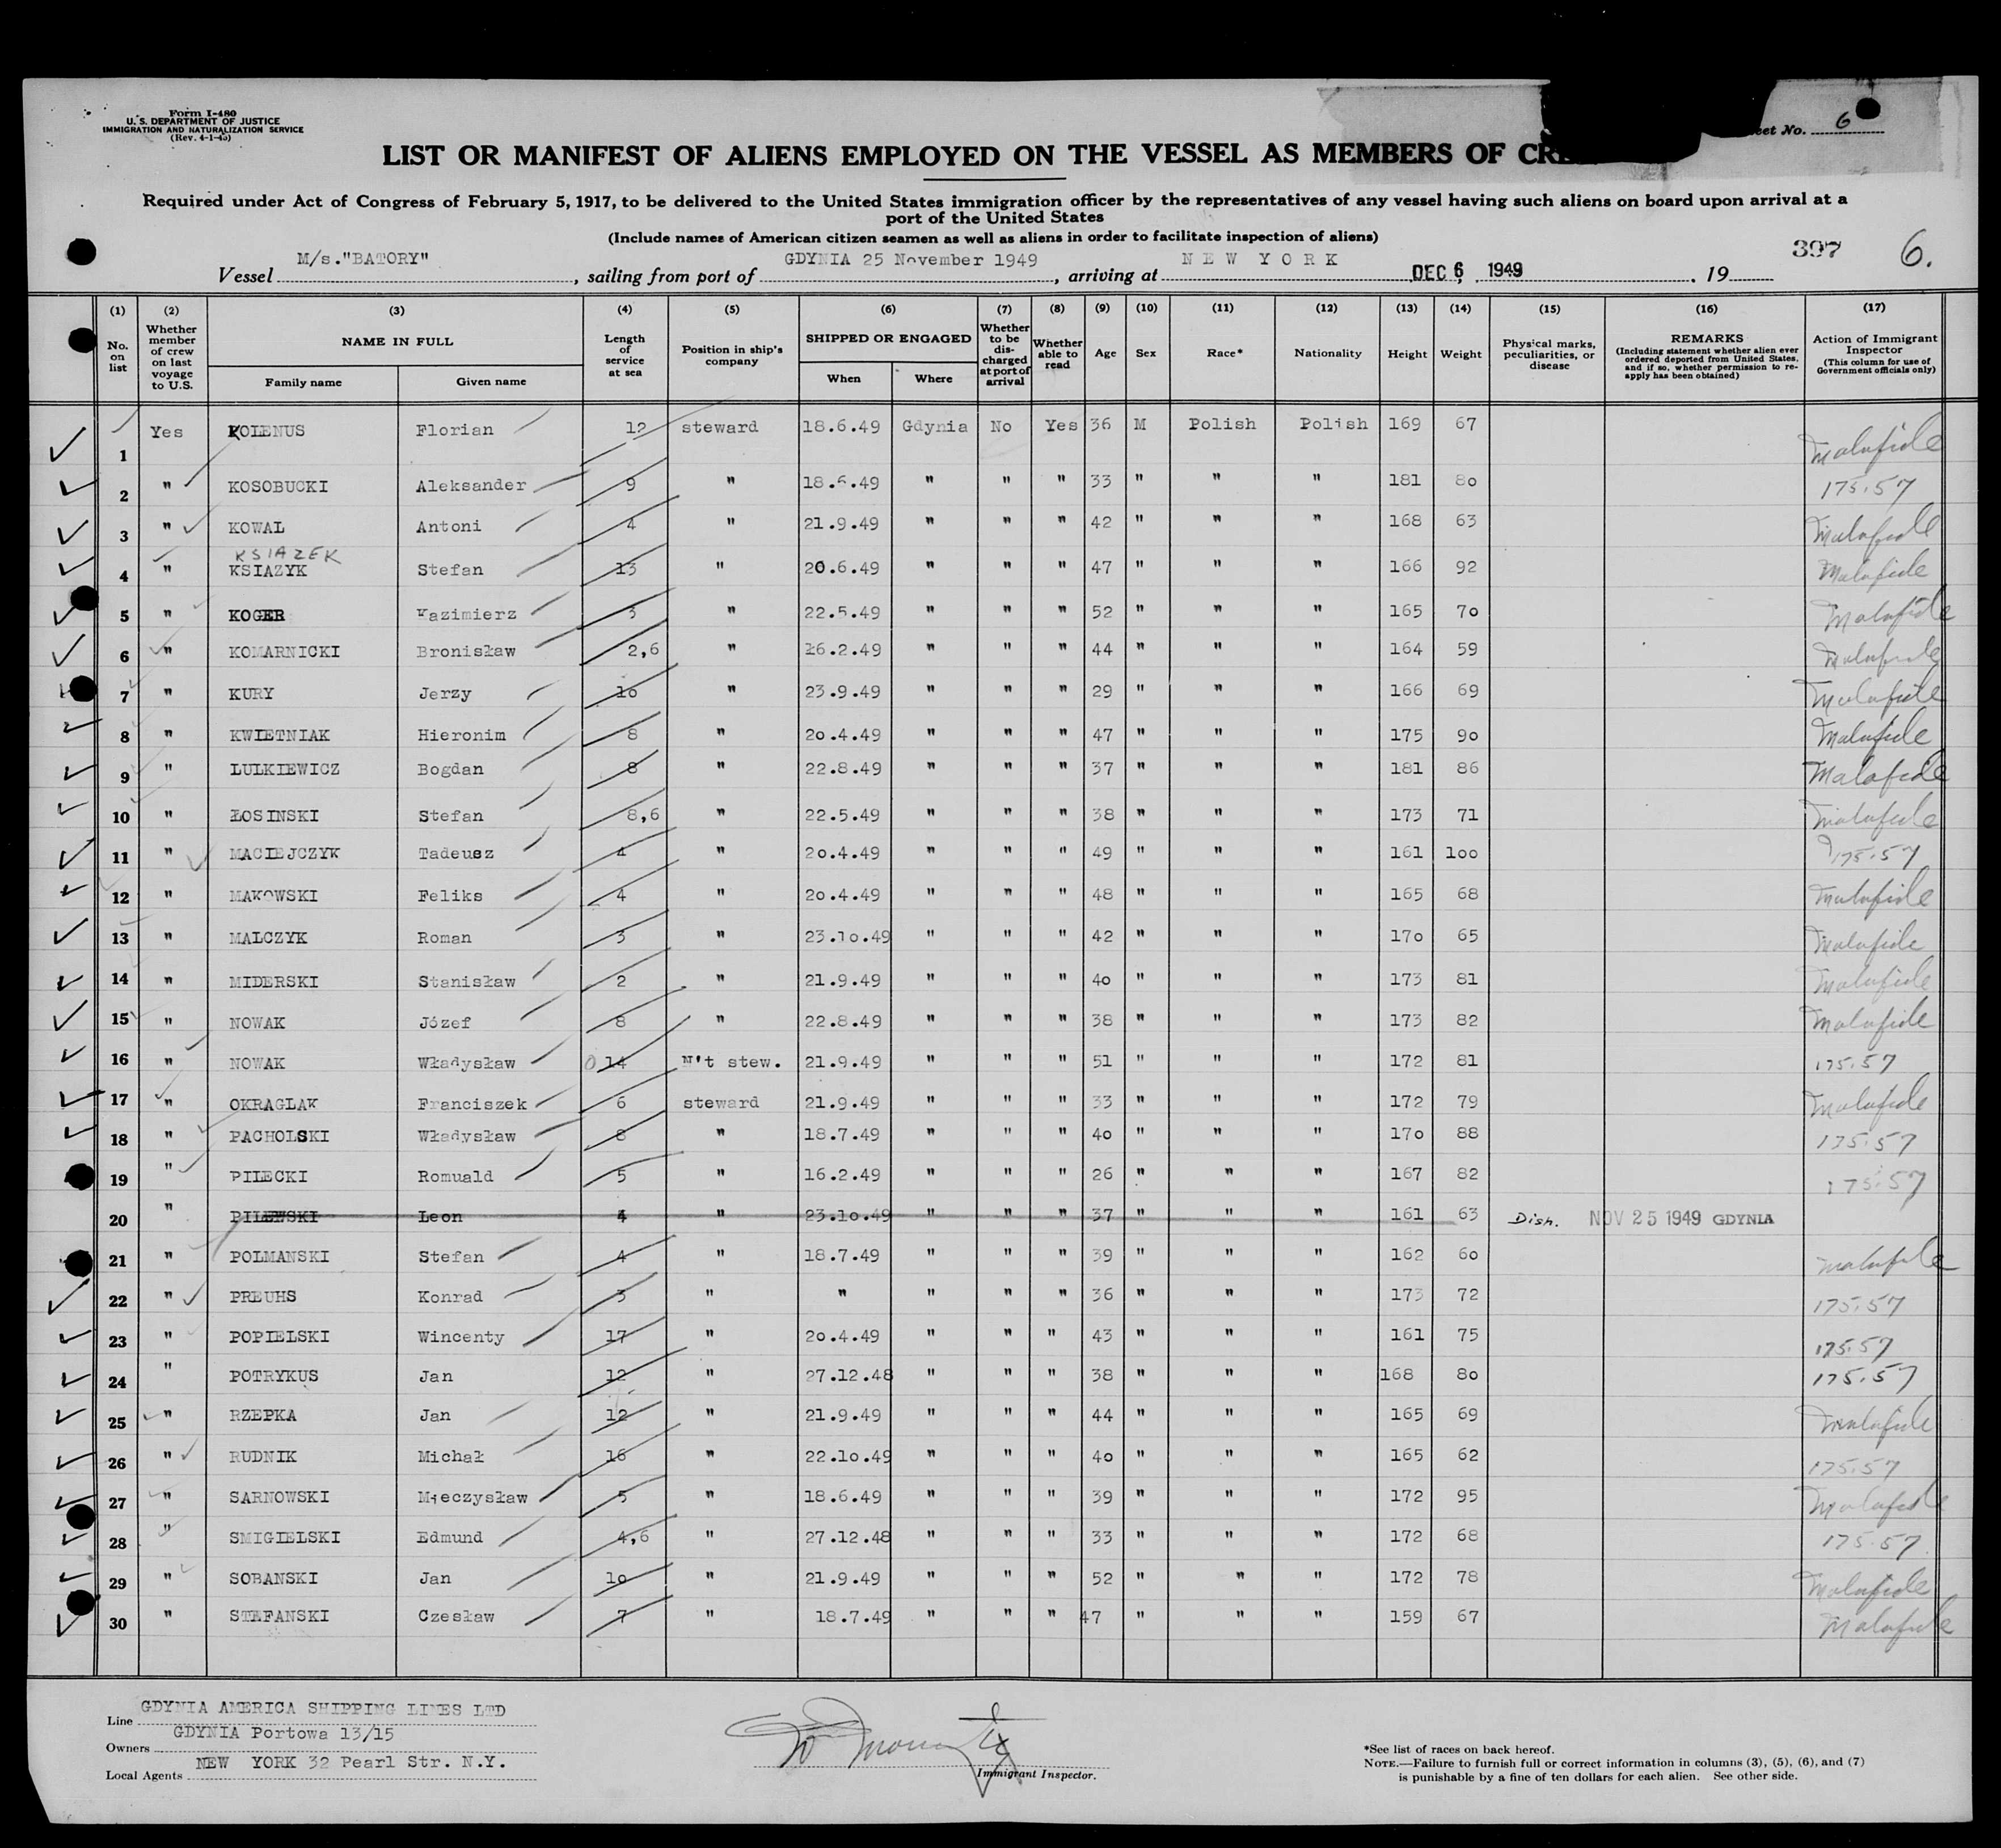 Form I-480
U. S. DEPARTMENT OF JUSTICE
IMMIGRATION AND NATURALIZATION SERVICE
(Rev. 4-1-45)
eet No. 6
LIST OR MANIFEST OF ALIENS EMPLOYED ON THE VESSEL AS MEMBERS OF CRE
Required under Act of Congress of February 5, 1917, to be delivered to the United States immigration officer by the representatives of any vessel having such aliens on board upon arrival at a
port of the United States
(Include names of American citizen seamen as well as aliens in order to facilitate inspection of aliens)
397 6.
Vessel M/s."BATORY", sailing from port of GDYNIA 25 November 1949, arriving at NEW YORK DEC 6, 1949, 19
(1) (2) (3) (4) (5) (6) (7) (8) (9) (10) (11) (12) (13) (14) (15) (16) (17)
No. on list
Whether member of crew on last voyage to U.S.
NAME IN FULL
Family name Given name
Length of service at sea
Position in ship's company
SHIPPED OR ENGAGED
When Where
Whether to be discharged at port of arrival
Whether able to read
Age Sex Race* Nationality Height Weight
Physical marks, peculiarities, or disease
REMARKS
(Including statement whether alien ever ordered deported from United States, and if so, whether permission to re-apply has been obtained)
Action of Immigrant Inspector
(This column for use of Government officials only)
1 Yes KOLENUS Florian 12 steward 18.6.49 Gdynia No Yes 36 M Polish Polish 169 67 Malafide
2 " KOSOBUCKI Aleksander 9 " 18.6.49 " " " 33 " " " 181 80 175.57
3 " KOWAL Antoni 4 " 21.9.49 " " " 42 " " " 168 63 Malafide
KSIAZEK
4 " KSIAZYK Stefan 13 " 20.6.49 " " " 47 " " " 166 92 Malafide
5 " KOGER Kazimierz 3 " 22.5.49 " " " 52 " " " 165 70 Malafide
6 " KOMARNICKI Bronisław 2,6 " 26.2.49 " " " 44 " " " 164 59 Malafide
7 " KURY Jerzy 10 " 23.9.49 " " " 29 " " " 166 69 Malafide
8 " KWIETNIAK Hieronim 8 " 20.4.49 " " " 47 " " " 175 90 Malafide
9 " LULKIEWICZ Bogdan 8 " 22.8.49 " " " 37 " " " 181 86 Malafide
10 " ŁOSINSKI Stefan 8,6 " 22.5.49 " " " 38 " " " 173 71 Malafide
11 " MACIEJCZYK Tadeusz 4 " 20.4.49 " " " 49 " " " 161 100 175.57
12 " MAKOWSKI Feliks 4 " 20.4.49 " " " 48 " " " 165 68 Malafide
13 " MALCZYK Roman 3 " 23.10.49 " " " 42 " " " 170 65 Malafide
14 " MIDERSKI Stanisław 2 " 21.9.49 " " " 40 " " " 173 81 Malafide
15 " NOWAK Józef 8 " 22.8.49 " " " 38 " " " 173 82 Malafide
16 " NOWAK Władysław 14 N't stew. 21.9.49 " " " 51 " " " 172 81 175.57
17 " OKRAGLAK Franciszek 6 steward 21.9.49 " " " 33 " " " 172 79 Malafide
18 " PACHOLSKI Władysław 8 " 18.7.49 " " " 40 " " " 170 88 175.57
19 " PILECKI Romuald 5 " 16.2.49 " " " 26 " " " 167 82 175.57
20 " PILEWSKI Leon 4 " 23.10.49 " " " 37 " " " 161 63 Dish. NOV 25 1949 GDYNIA
21 " POLMANSKI Stefan 4 " 18.7.49 " " " 39 " " " 162 60 Malafide
22 " PREUHS Konrad 3 " " " " " 36 " " " 173 72 175.57
23 " POPIELSKI Wincenty 17 " 20.4.49 " " " 43 " " " 161 75 175.57
24 " POTRYKUS Jan 12 " 27.12.48 " " " 38 " " " 168 80 175.57
25 " RZEPKA Jan 12 " 21.9.49 " " " 44 " " " 165 69 Malafide
26 " RUDNIK Michał 16 " 22.10.49 " " " 40 " " " 165 62 175.57
27 " SARNOWSKI Mieczysław 5 " 18.6.49 " " " 39 " " " 172 95 Malafide
28 " SMIGIELSKI Edmund 4,6 " 27.12.48 " " " 33 " " " 172 68 175.57
29 " SOBANSKI Jan 10 " 21.9.49 " " " 52 " " " 172 78 Malafide
30 " STEFANSKI Czesław 7 " 18.7.49 " " " 47 " " " 159 67 Malafide
Line GDYNIA AMERICA SHIPPING LINES LTD
Owners GDYNIA Portowa 13/15
Local Agents NEW YORK 32 Pearl Str. N.Y.
Immigrant Inspector.
*See list of races on back hereof.
NOTE.—Failure to furnish full or correct information in columns (3), (5), (6), and (7)
is punishable by a fine of ten dollars for each alien. See other side.